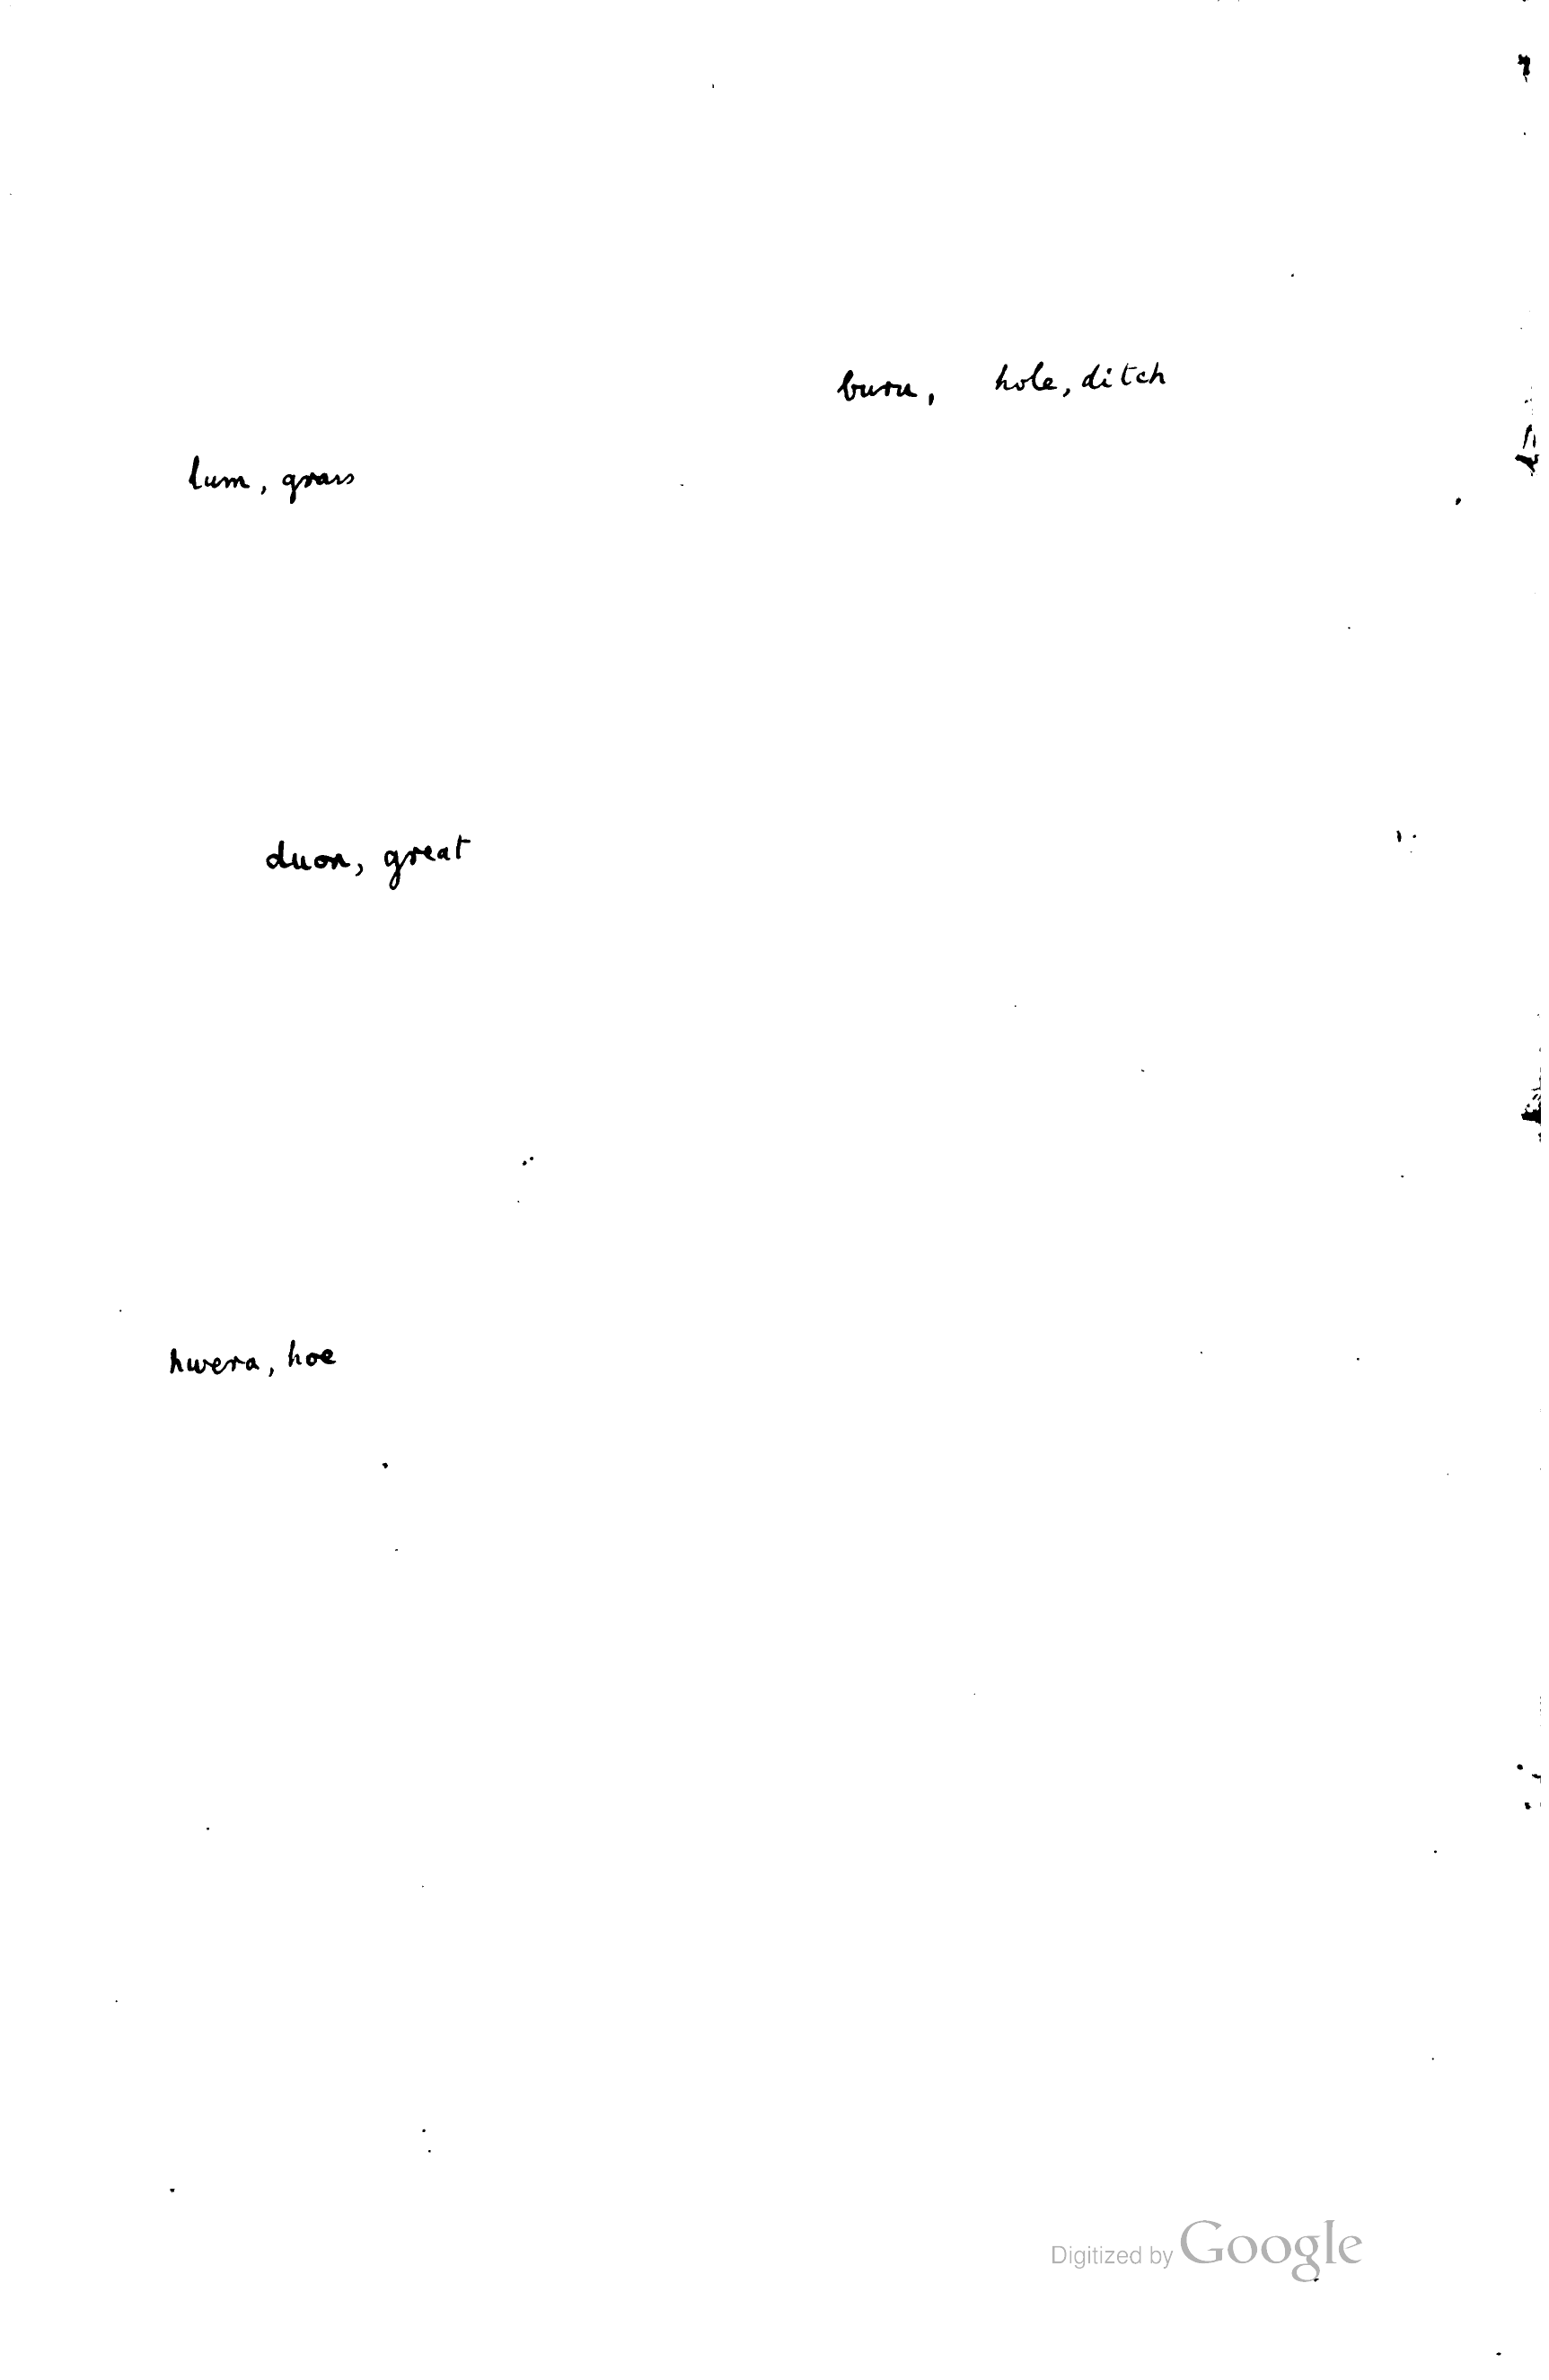 buru, hole, ditch
lum, grass
duon, great
hwera, hoe
Digitized by Google